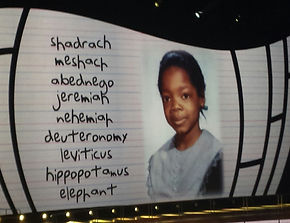 shadrach
meshach
abednego
jeremiah
nehemiah
deuteronomy
leviticus
hippopotamus
elephant